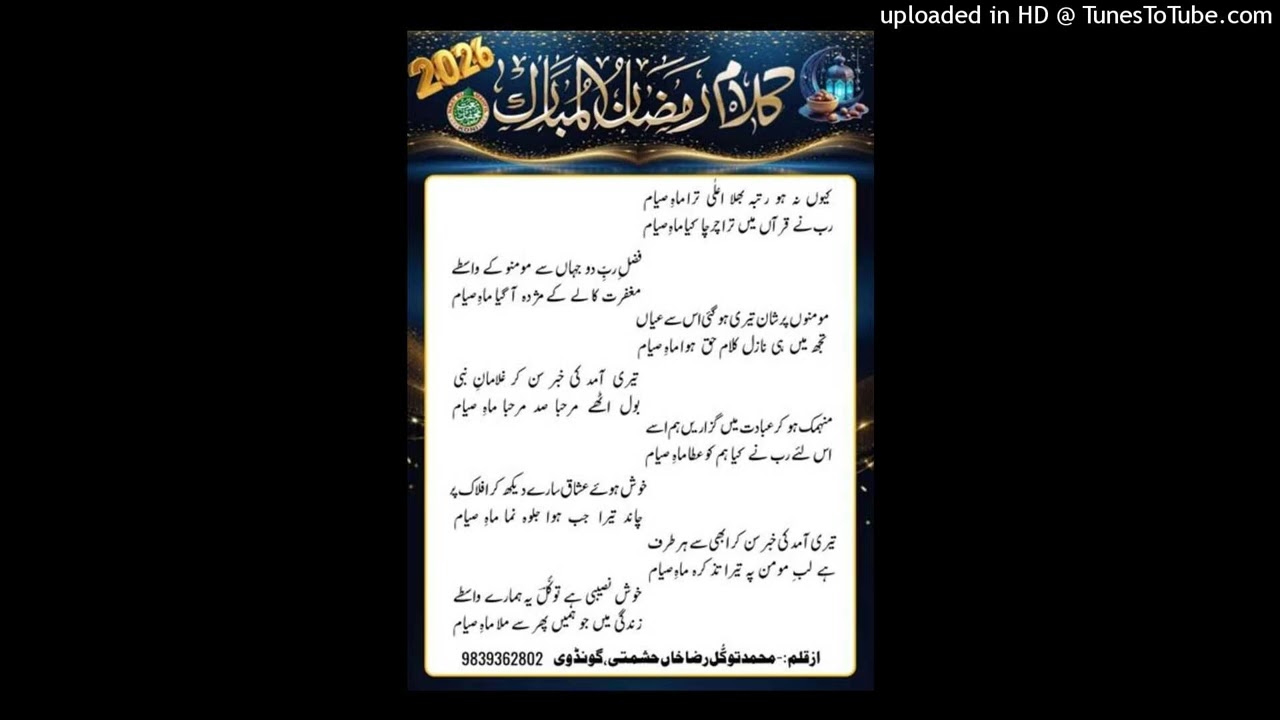 uploaded in HD @ TunesToTube.com
2026
کلام رمضان المبارک
کیوں نہ ہو رتبہ بھلا اعلٰی ترا ماہِ صیام
رب نے قرآں میں ترا چرچا کیا ماہِ صیام
فضلِ ربِّ دو جہاں سے مومنو کے واسطے
مغفرت کا لے کے مژدہ آ گیا ماہِ صیام
مومنوں پر شان تیری ہو گئی اس سے عیاں
تجھ میں ہی نازل کلام حق ہوا ماہِ صیام
تیری آمد کی خبر سن کر غلامانِ نبی
بول اٹھے مرحبا صد مرحبا ماہِ صیام
منہمک ہو کر عبادت میں گزاریں ہم اسے
اس لئے رب نے کیا ہم کو عطا ماہِ صیام
خوش ہوئے عشاق سارے دیکھ کر افلاک پر
چاند تیرا جب ہوا جلوہ نما ماہِ صیام
تیری آمد کی خبر سن کر ابھی سے ہر طرف
ہے لبِ مومن پہ تیرا تذکرہ ماہِ صیام
خوش نصیبی ہے توکّل یہ ہمارے واسطے
زندگی میں جو ہمیں پھر سے ملا ماہِ صیام
از قلم:- محمد توکّل رضا خاں حشمتی، گونڈوی 9839362802